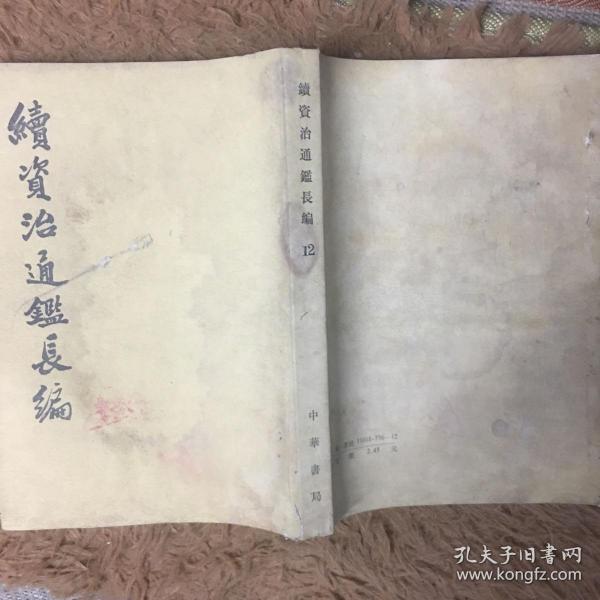 續資治通鑑長編
續資治通鑑長編 12
中華書局
2.45 元
孔夫子旧書网
www.kongfz.com